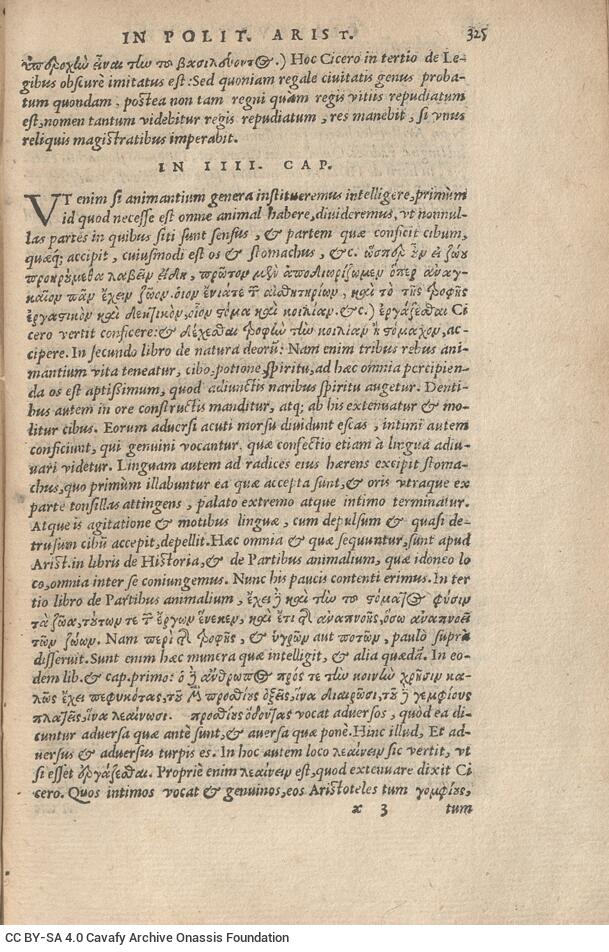 IN POLIT. ARIST. 325
εἶναι τὴν τοῦ βασιλεύοντος.) Hoc Cicero in tertio de Le-
gibus obscurè imitatus est: Sed quoniam regale ciuitatis genus proba-
tum quondam, postea non tam regni quàm regis vitiis repudiatum
est, nomen tantum videbitur regis repudiatum, res manebit, si vnus
reliquis magistratibus imperabit.
IN IIII. CAP.
VT enim si animantium genera institueremus intelligere, primùm
id quod necesse est omne animal habere, diuideremus, vt nonnul-
las partes in quibus siti sunt sensus, & partem quæ conficit cibum,
quæq; accipit, cuiusmodi est os & stomachus, &c. ὥσπερ οὖν εἰ ζώου
προῃρούμεθα λαβεῖν εἴδη, πρῶτον μὲν ἀποδιωρίζομεν ὅπερ ἀναγ-
καῖον πᾶν ἔχειν ζῶον. οἷον ἔνιά τε τ αἰσθητηρίων, καὶ τὸ τῆς τροφῆς
ἐργαστικὸν καὶ δεκτικὸν, οἷον στόμα καὶ κοιλίαν. &c.) ἐργάζεσθαι Ci
cero vertit conficere: & δέχεσθαι τροφὴν τὴν κοιλίαν ἢ στόμαχον, ac-
cipere. In secundo libro de natura deorū: Nam enim tribus rebus ani-
mantium vita teneatur, cibo, potione, spiritu, ad hæc omnia percipien-
da os est aptißimum, quod adiunctis naribus spiritu augetur. Denti-
bus autem in ore constructis manditur, atq; ab his extenuatur & mo-
litur cibus. Eorum aduersi acuti morsu diuidunt escas, intimi autem
conficiunt, qui genuini vocantur. quæ confectio etiam à lingua adiu-
uari videtur. Linguam autem ad radices eius hærens excipit stoma-
chus, quo primùm illabuntur ea quæ accepta sunt, & oris vtraque ex
parte tonsillas attingens, palato extremo atque intimo terminatur.
Atque is agitatione & motibus linguæ, cum depulsum & quasi de-
trusum cibū accepit, depellit. Hæc omnia & quæ sequuntur, sunt apud
Arist. in libris de Historia, & de Partibus animalium, quæ idoneo lo
co, omnia inter se coniungemus. Nunc his paucis contenti erimus. In ter
tio libro de Partibus animalium, ἔχει ἢ καὶ τὴν τοῦ στόματος φύσιν
τὰ ζῶα, τούτων τε τ ἔργων ἕνεκεν, καὶ ἔτι δὲ ἀναπνοῆς, ὅσα ἀναπνεῖ
τῶν ζώων. Nam περὶ δὲ τροφῆς, & ὑγρῶν aut ποτῶν, paulò suprà
disseruit. Sunt enim hæc munera quæ intelligit, & alia quædā. In eo-
dem lib. & cap. primo: ὁ δ ἄνθρωπος πρός τε τὴν κοινὴν χρῆσιν κα-
λῶς ἔχει πεφυκότας, τοὺς μὲν προσθίους ὀξεῖς, ἵνα διαιρῶσι, τοὺς δὲ γομφίους
πλατεῖς, ἵνα λεαίνωσι. προσθίους ὀδόντας vocat aduersos, quod ea di-
cuntur aduersa quæ antè sunt, & auersa quæ ponè. Hinc illud, Et ad-
uersus & aduersus turpis es. In hoc autem loco λεαίνειν sic vertit, vt
si esset ἐργάζεσθαι. Propriè enim λεαίνειν est, quod extenuare dixit Ci
cero. Quos intimos vocat & genuinos, eos Aristoteles tum γομφίους,
x 3 tum
CC BY-SA 4.0 Cavafy Archive Onassis Foundation